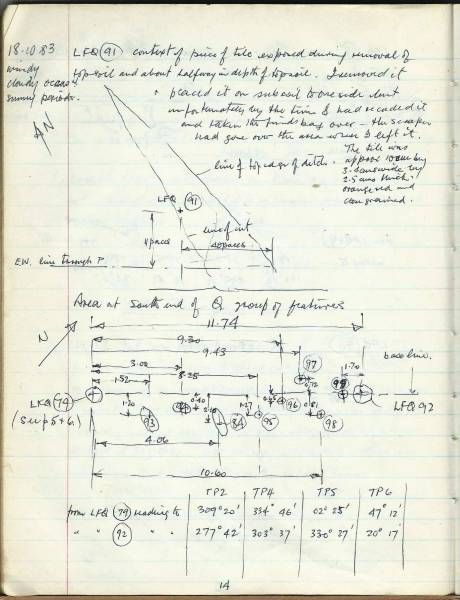 18·10·83
windy
cloudy occas
sunny periods.
LFQ (91) context of piece of tile exposed during removal of
topsoil and about halfway in depth of topsoil. I removed it
placed it on subsoil to one side but
unfortunately by the time I had recorded it
and taken the finds bag over - the scraper
had gone over the area where I left it.
The tile was
approx 10cm by
thick.
orange red and
N
line of top edge of ditch.
LFQ (91)
4 paces
line of cut
20 paces
E.W. line through P
Area at South end of Q group of features
11.74
N
9.30
9.43
(97)
3.02
8.25
1.70
base line.
1.52
0.72
LFQ (74)
(See p 5+6.)
1.20
(93)
0.40
(84)
(95)
(96)
0.81
(98)
LFQ 92
4.06
10.60
TP2 TP4 TP5 TP6
from LFQ (79) reading to 309° 20' 334° 46' 02° 25' 47° 12'
" " (92) " " 277° 42' 303° 37' 330° 27' 20° 17'
14